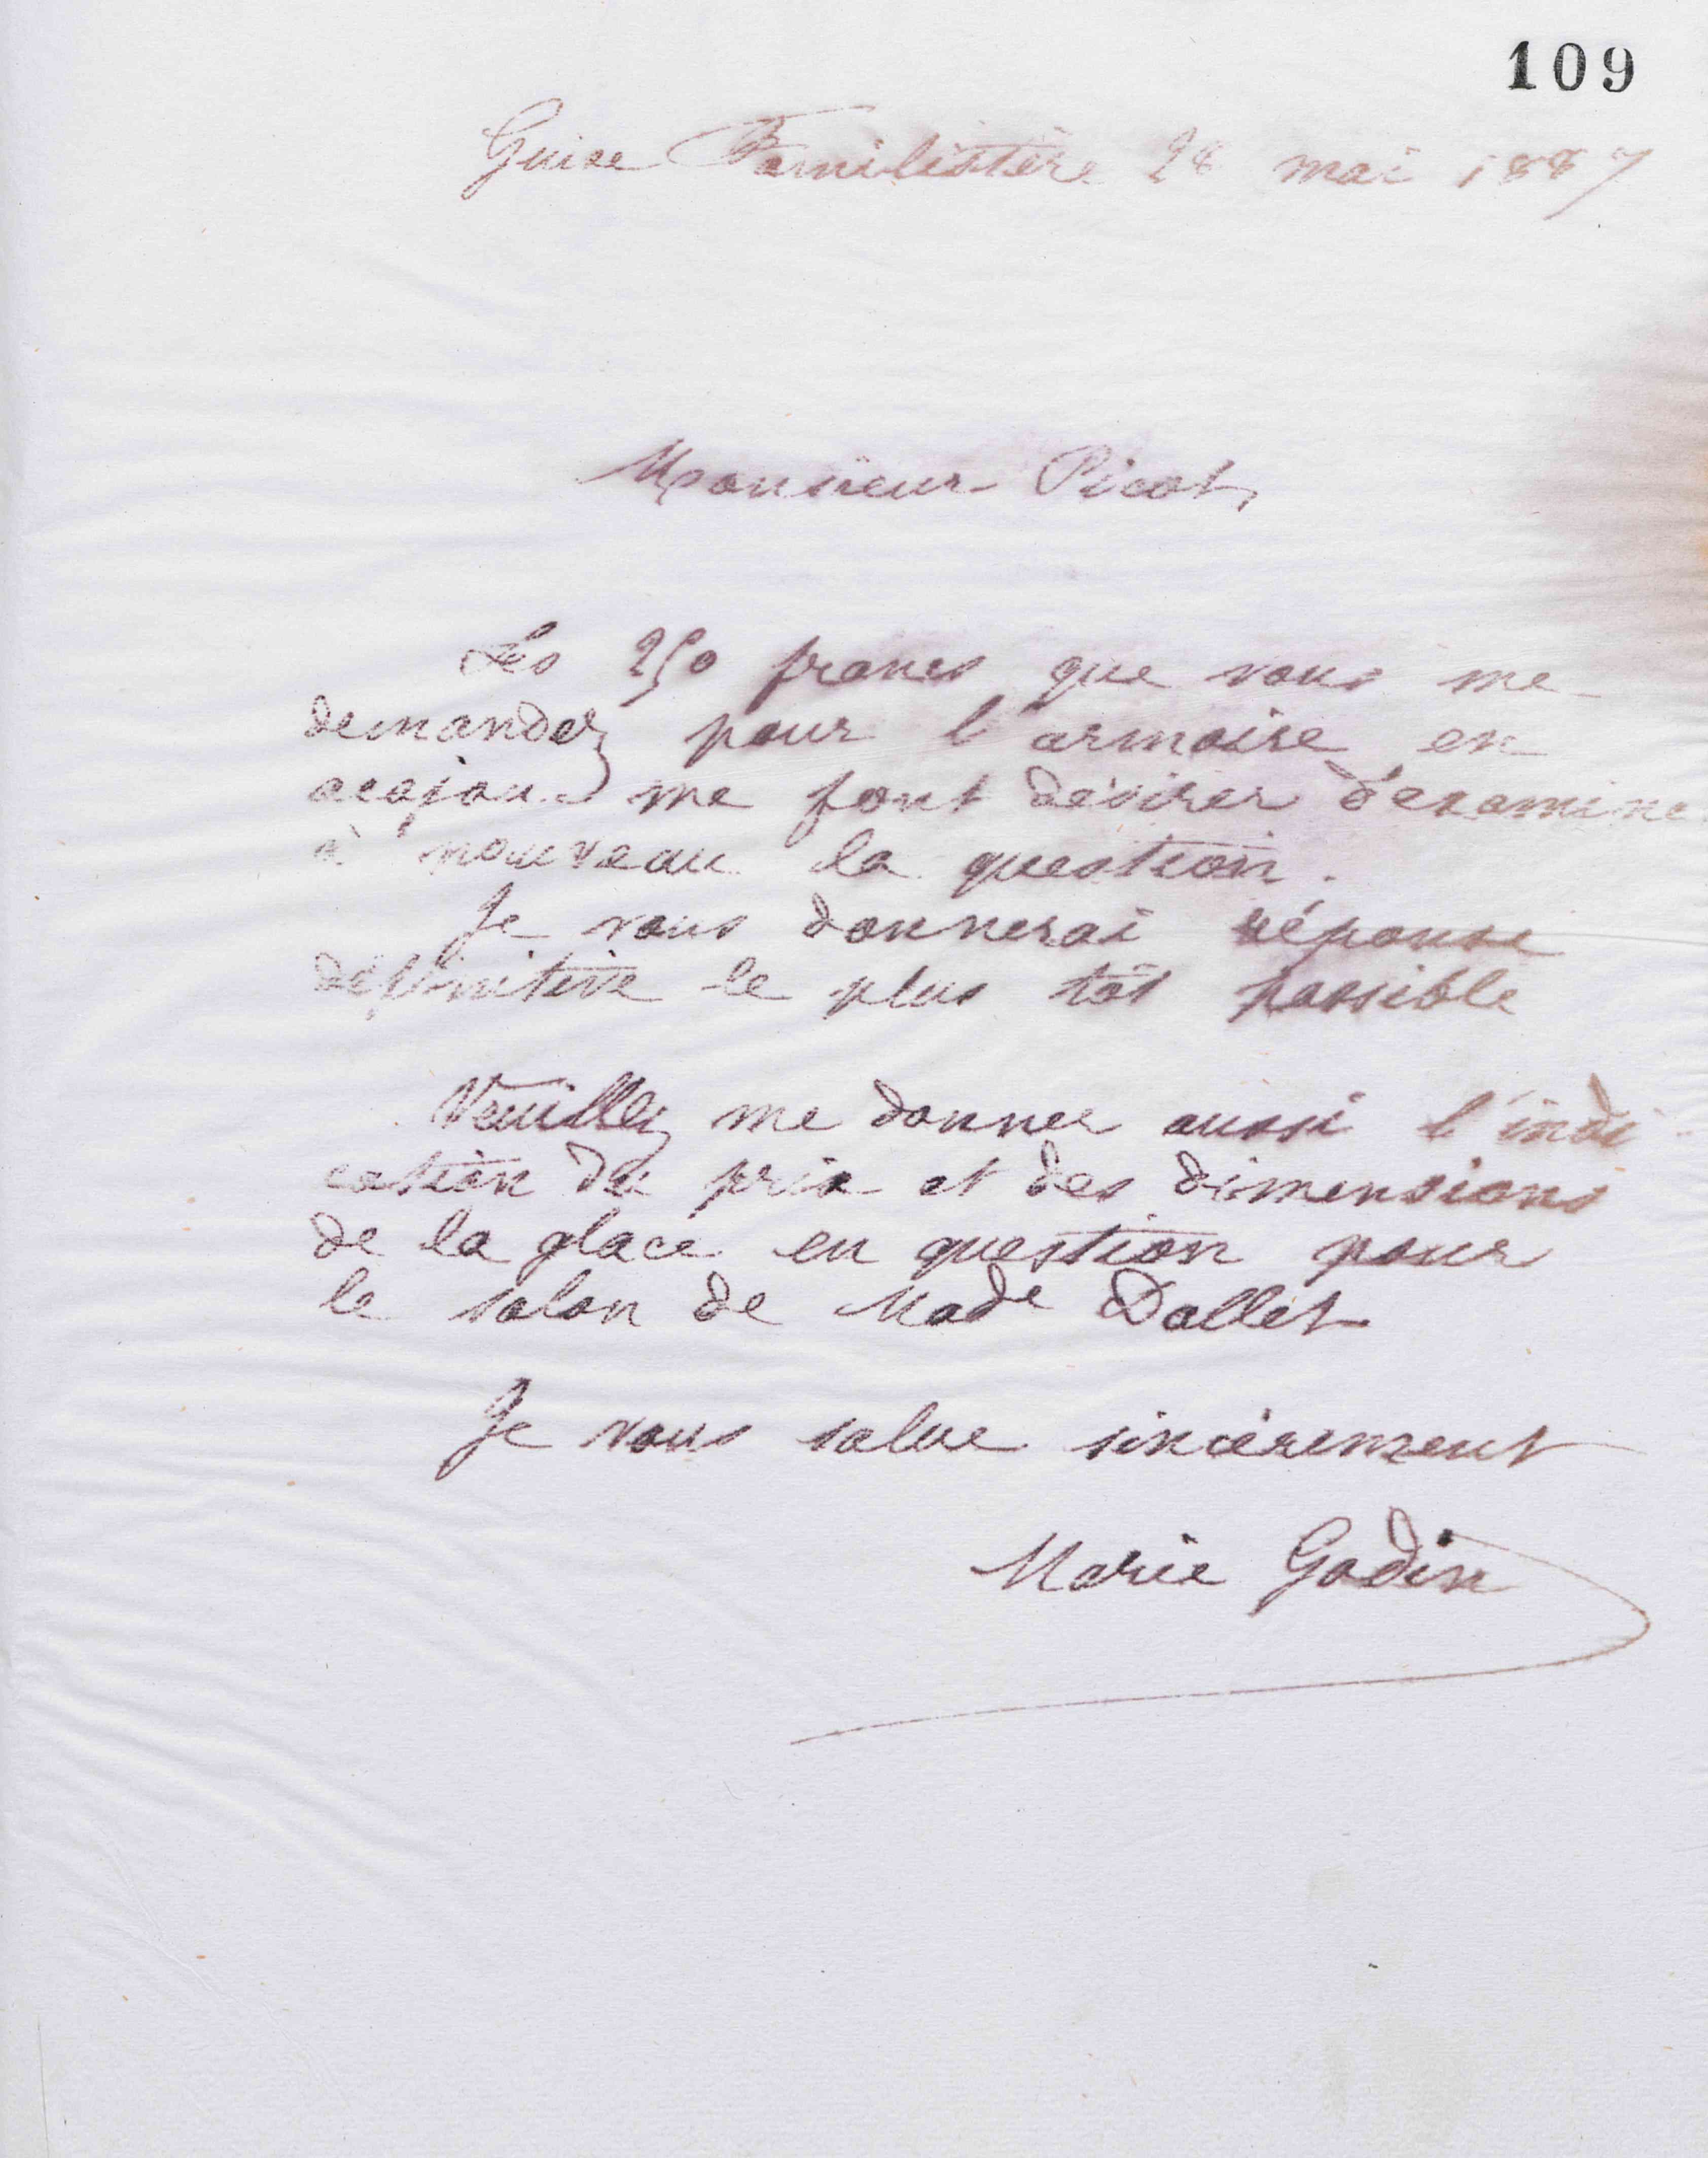 109
Guise Familistère 28 mai 1887
Monsieur Picot,
Les 250 francs que vous me
demandez pour l'armoire en
acajou me font désirer d'examiner
à nouveau la question.
Je vous donnerai réponse
définitive le plus tôt possible
Veuillez me donner aussi l'indi
cation du prix et des dimensions
de la glace en question pour
le salon de Made Dallet
Je vous salue sincèrement
Marie Godin